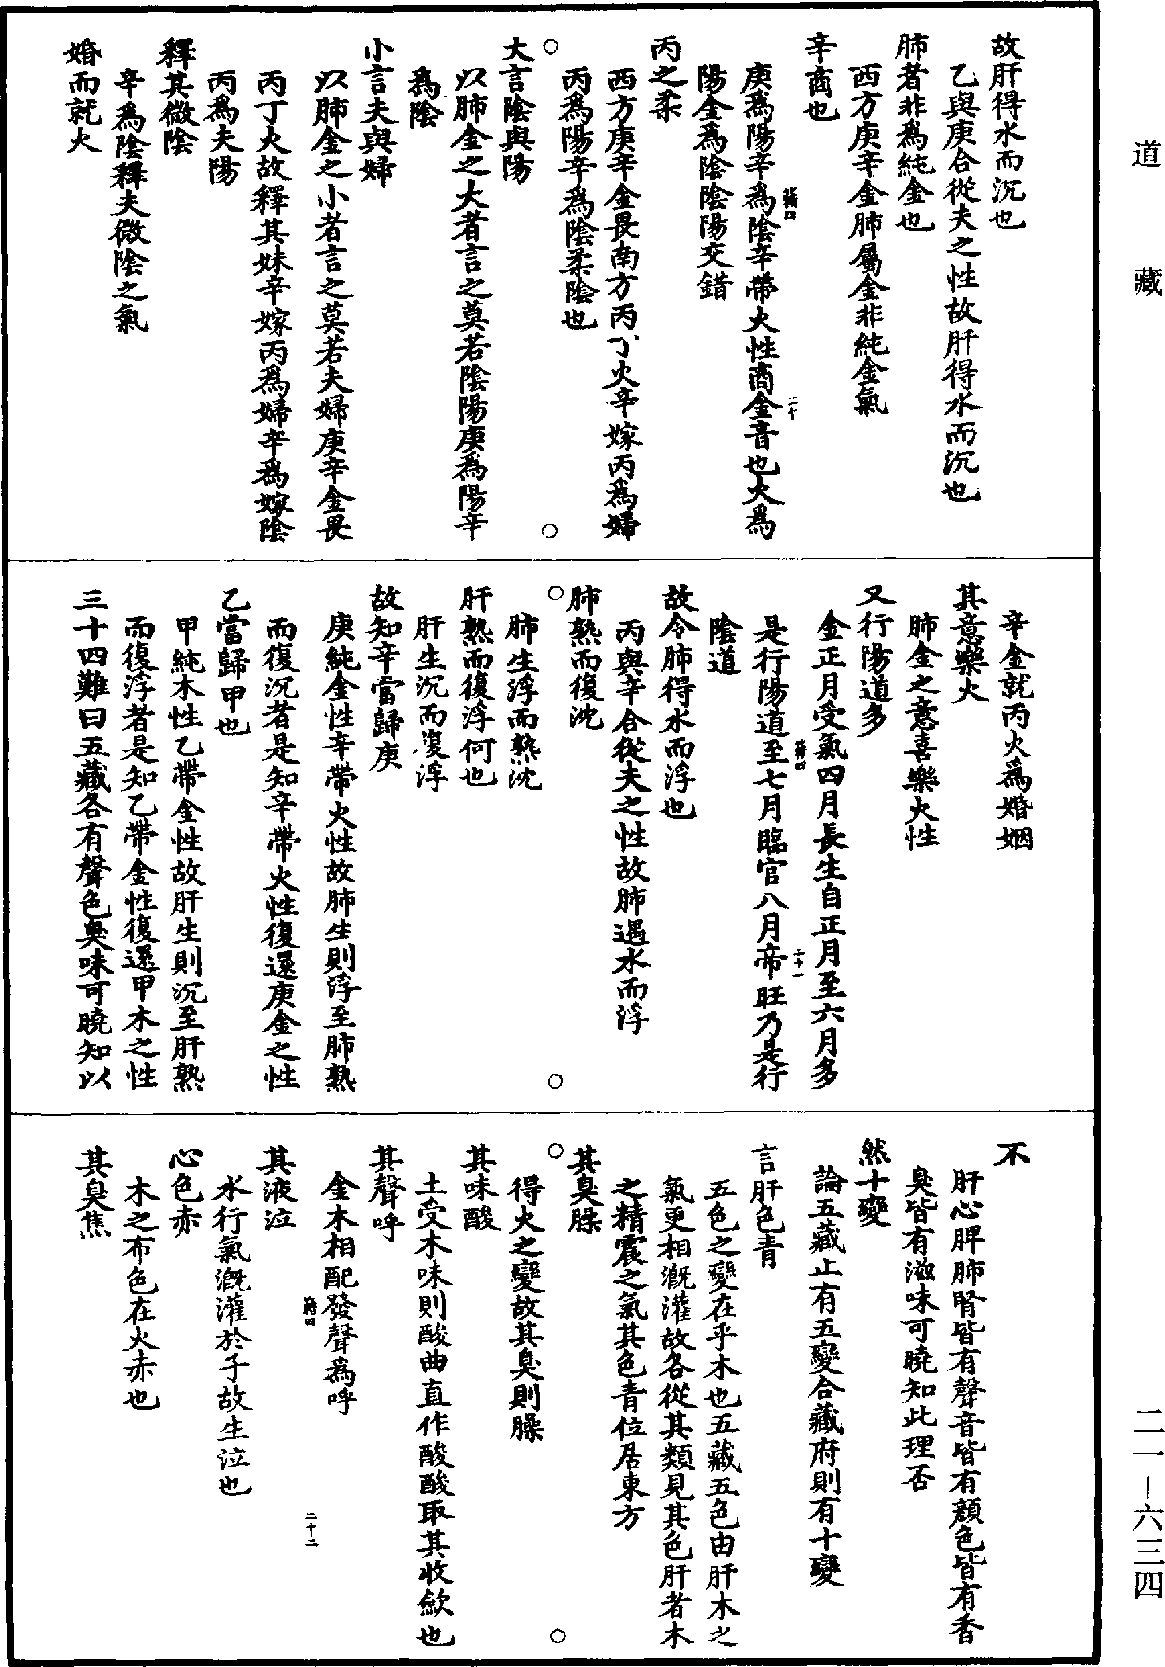 道藏
故肝得水而沉也
乙與庚合從夫之性故肝得水而沉也
肺者非爲純金也
西方庚辛金肺屬金非純金氣
辛商也
庚爲陽辛爲陰辛帶火性商金音也火爲
陽金爲陰陰陽交錯
丙之柔
西方庚辛金畏南方丙丁火辛嫁丙爲婦
丙爲陽辛爲陰柔陰也
大言陰與陽
以肺金之大者言之莫若陰陽庚爲陽辛
爲陰
小言夫與婦
以肺金之小者言之莫若夫婦庚辛金畏
丙丁火故釋其妹辛嫁丙爲婦辛爲嫁陰
丙爲夫陽
釋其微陰
辛爲陰釋夫微陰之氣
婚而就火
二十
辛金就丙火爲婚姻
其意樂火
肺金之意喜樂火性
又行陽道多
金正月受氣四月長生自正月至六月多
是行陽道至七月臨官八月帝旺乃是行
陰道
故令肺得水而浮也
丙與辛合從夫之性故肺遇水而浮
肺熟而復沈
肺生浮而熟沈
肝熟而復浮何也
肝生沉而復浮
故知辛當歸庚
庚純金性辛帶火性故肺生則浮至肺熟
而復沉者是知辛帶火性復還庚金之性
乙當歸甲也
甲純木性乙帶金性故肝生則沉至肝熟
而復浮者是知乙帶金性復還甲木之性
三十四難曰五藏各有聲色臭味可曉知以
二十一
不
肝心脾肺腎皆有聲音皆有顏色皆有香
臭皆有滋味可曉知此理否
然十變
論五藏止有五變合藏府則有十變
言肝色青
五色之變在乎木也五藏五色由肝木之
氣更相溉灌故各從其類見其色肝者木
之精震之氣其色青位居東方
其臭臊
得火之變故其臭則臊
其味酸
土受木味則酸曲直作酸酸取其收斂也
其聲呼
金木相配發聲爲呼
其液泣
水行氣溉灌於子故生泣也
心色赤
木之布色在火赤也
其臭焦
二十二
二一－六三四